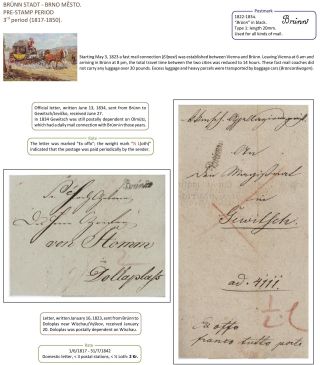 BRÜNN STADT - BRNO MĚSTO.
PRE-STAMP PERIOD
3rd period (1817-1850).
Postmark
1822-1834.
"Brünn" in black.
Type 1: length 20mm.
Used for all kinds of mail.
Brünn
Starting May 5, 1823 a fast mail connection (Eilpost) was established between Vienna and Brünn. Leaving Vienna at 6 am and
arriving in Brünn at 8 pm, the total travel time between the two cities was reduced to 14 hours. These fast mail coaches did
not carry any luggage over 20 pounds. Excess luggage and heavy parcels were transported by luggage cars (Brancardwagen).
Official letter, written June 13, 1834, sent from Brünn to
Gewitsch/Jevíčko, received June 27.
In 1834 Gewitsch was still postally dependent on Olmütz,
which had a daily mail connection with Brünn in those years.
Rate
The letter was marked "Ex offo"; the weight mark "½ L(oth)"
indicated that the postage was paid periodically by the sender.
Brünn
von Stomm
Dollaplass
Brünn
An
den Magistrat
in
Gewitsch.
ad. 4111.
½ L
Ex offo
franco tutto porto
Letter, written January 16, 1823, sent from Brünn to
Doloplas near Wischau/Vyškov, received January
20. Doloplas was postally dependent on Wischau.
Rate
1/6/1817 - 31/7/1842
Domestic letter, < 3 postal stations, < ½ loth: 2 Kr.